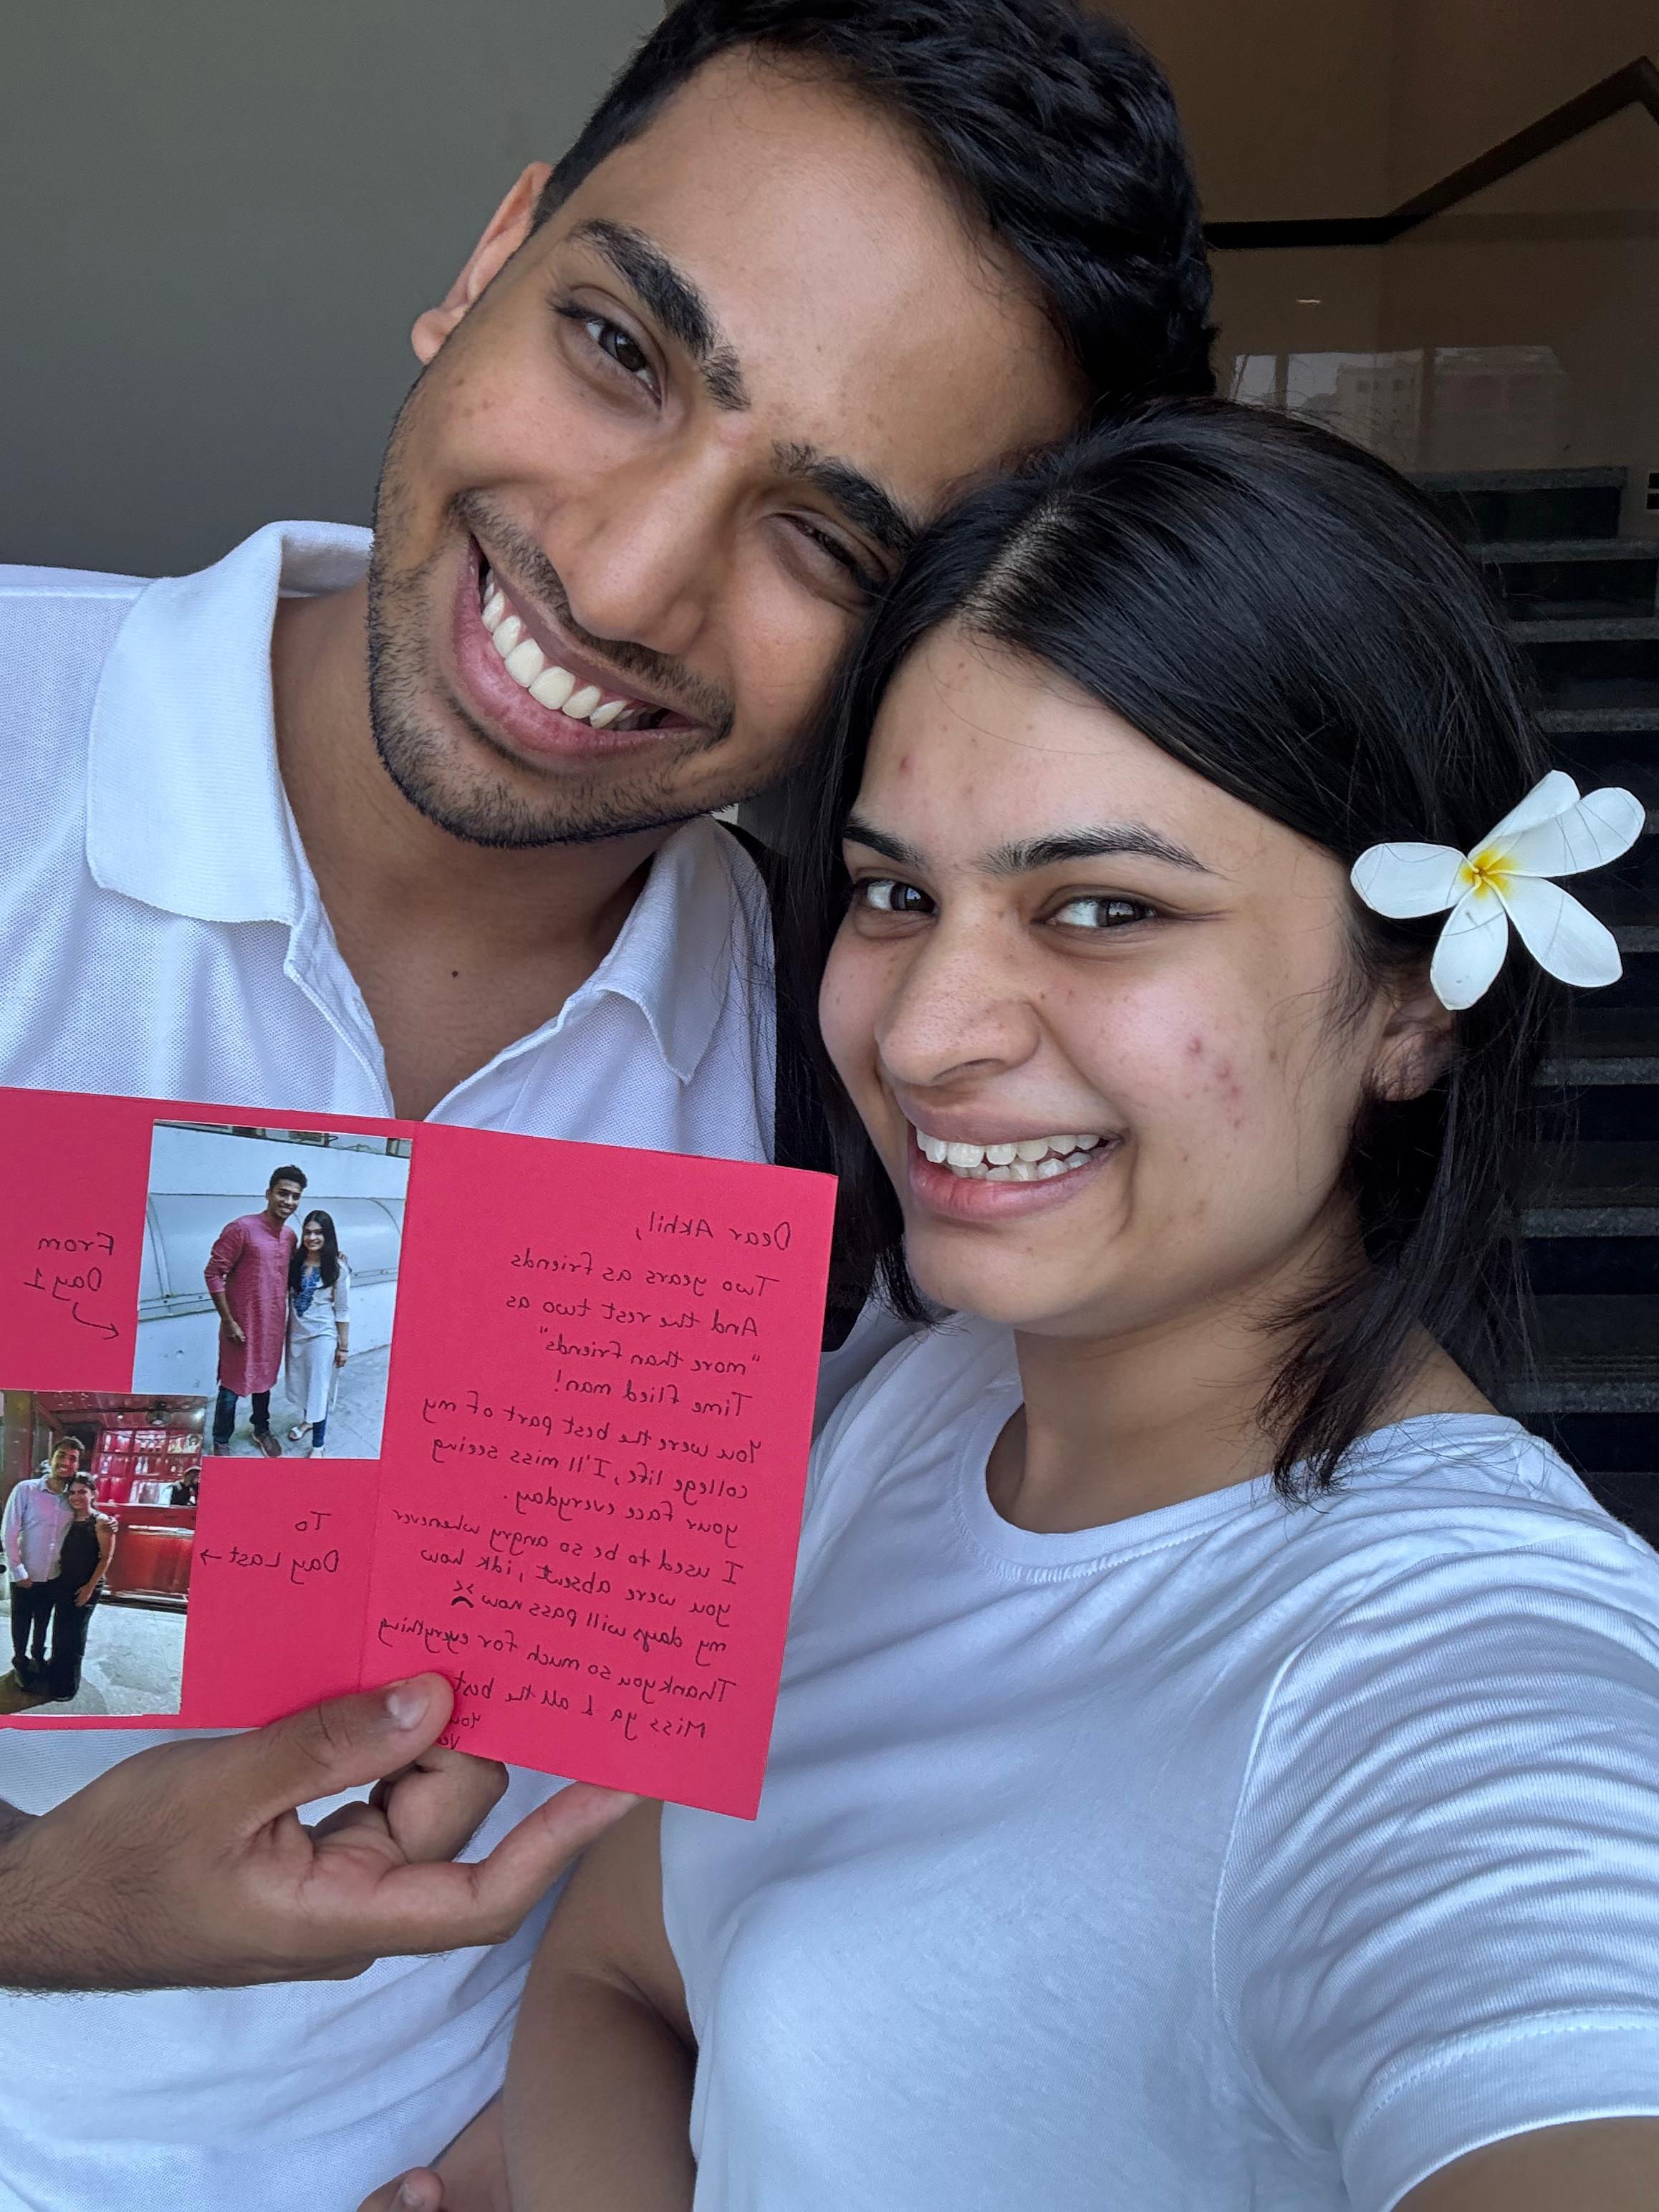 From
Day 1
To
Day Last →
Dear Akhil,
Two years as friends
And the rest two as
"more than friends"
Time flied man!
You were the best part of my
college life, I'll miss seeing
your face everyday.
I used to be so angry whenever
you were absent, idk how
my days will pass now
Thank you so much for everything
Miss ya & all the best